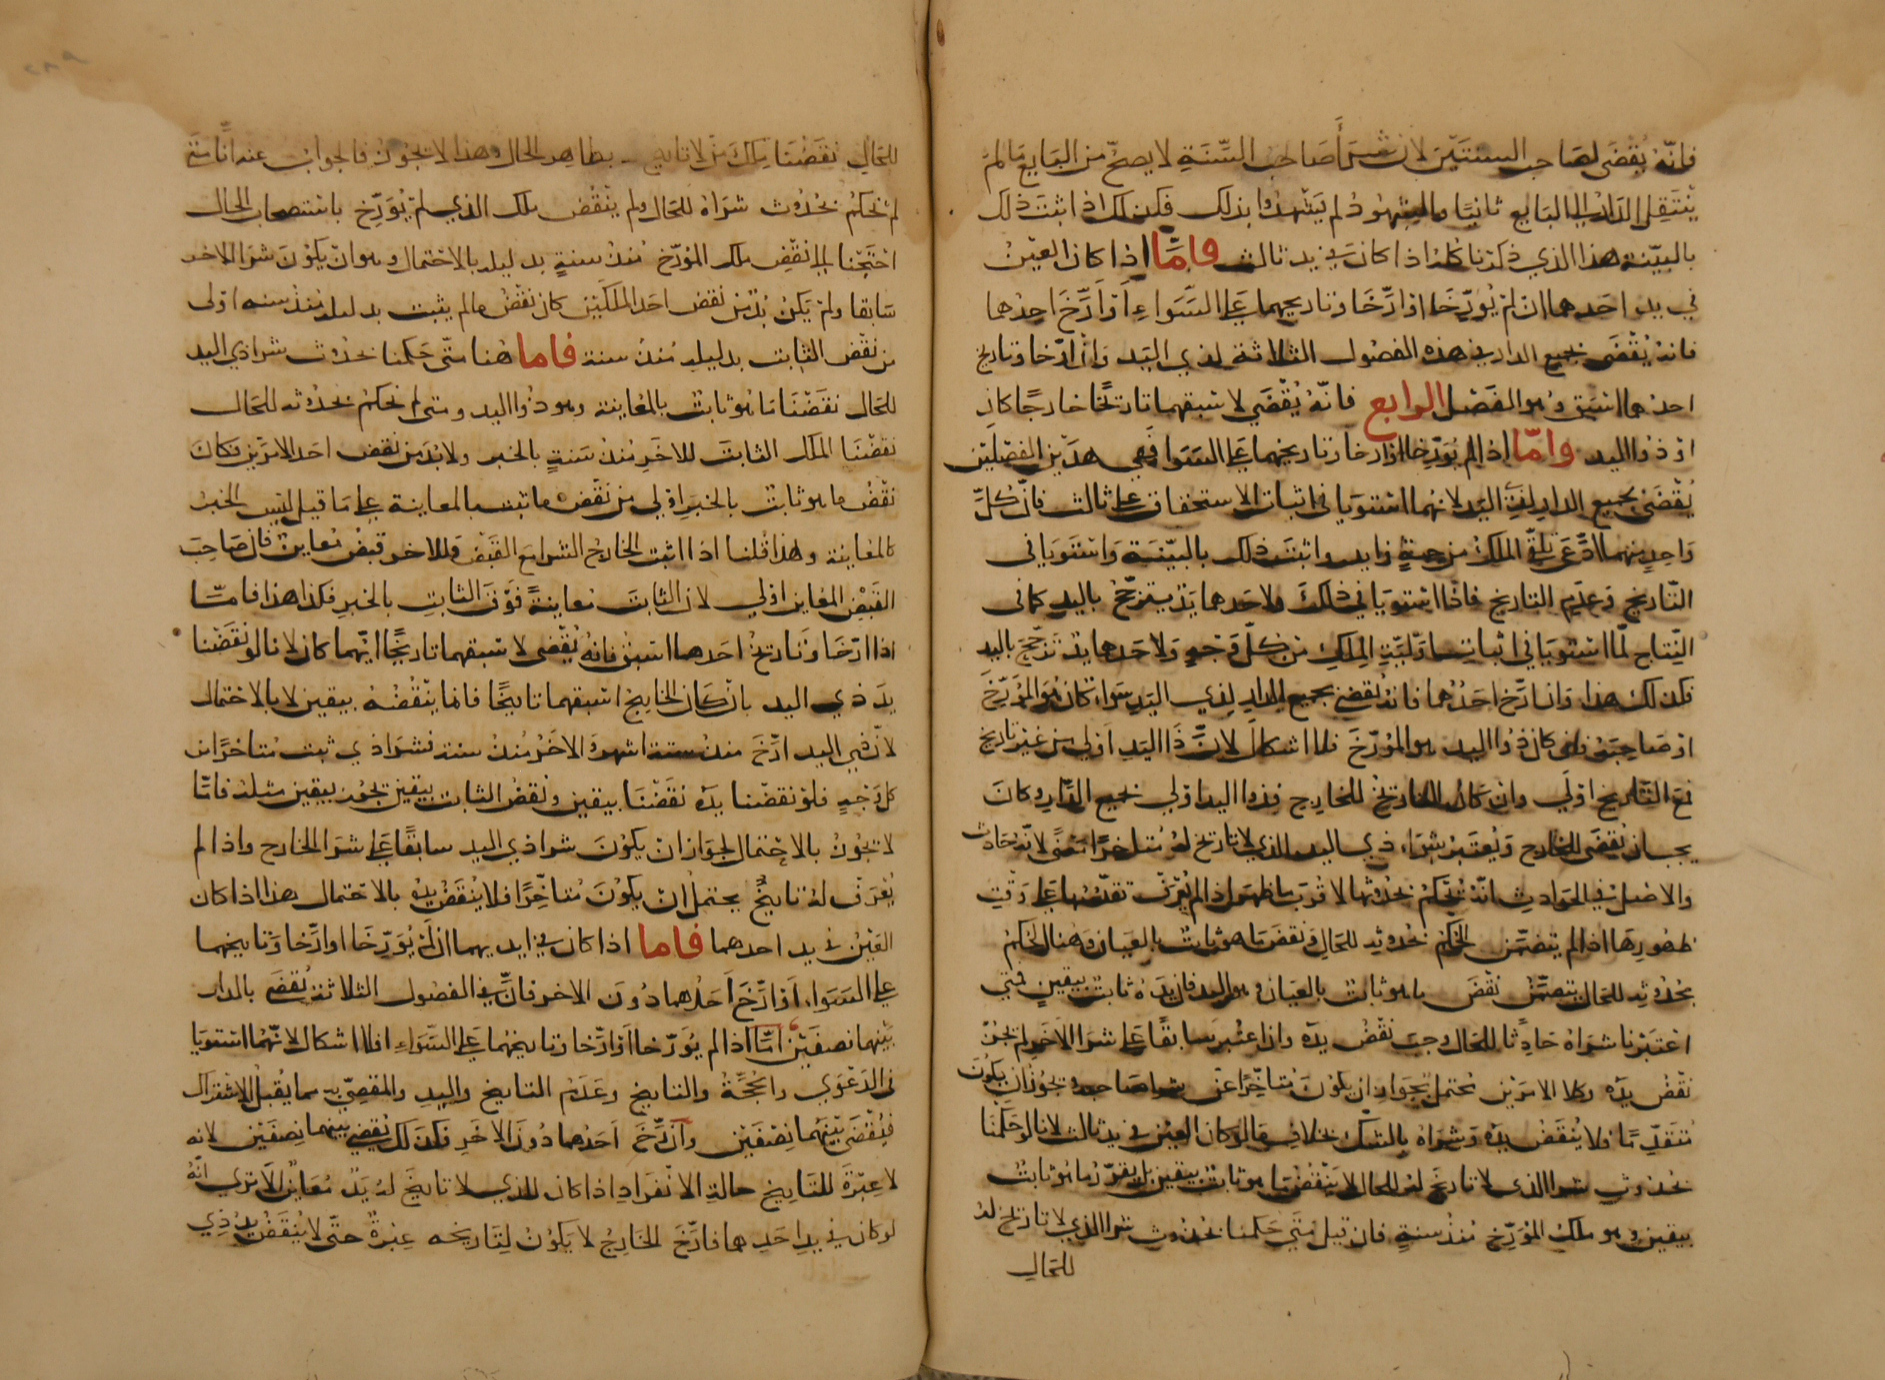 فانّه يُقْضَى لصاحب السنتَيْن لان شرَى صَاحب السَّنَةِ لا يصحّ من البَايع مَا لمْ
يَنْتَقِل الدار الى البَايع ثانيًا والشهُودُ لم يَشْهدُوا بذلك فكذلك اذا ثبتَ ذلك
بالبيّنة هذا الذي ذكرنا كله اذا كانَ في يد ثالث فامّا اذا كان العَيْنُ
في يد احَدهما ان لم يُؤرّخَا او ارّخَا وتاريخهما عَلى السَّوَاءِ اَو اَرّخَ احدُهما
فانه يُقْضَى بجميع الدار في هذه الفصُول الثلاثة لذي اليَد وَانْ ارّخا وتاريخ
احدهما اسْبَق وهو الفَصْل الرابع فانّه يُقْضَى لاسْبقهما تاريخًا خارجًا كان
او ذُو اليد وامّا اذا لم يُؤَرّخا او ارّخا وتاريخهما عَلى السَوَا ففي هذين الفصْلَيْن
يُقْضَى بجميع الدار لذِي اليَد لانهُما اسْتوَيَا في اثبات الاستحقاق على ثالث فانّ كلّ
وَاحِدٍ منهما ادَّعَى تلقّي الملك من جهةِ زايد واثبتَ ذلك بالبيّنَة وَاسْتَوَيَا في
التّاريخِ وَعَدَمِ التاريخِ فاذا اسْتوَيَا في ذلكَ ولاحَدهما يَد يترجّحُ باليَدِ كما في
النِّتاج لمّا اسْتوَيَا في اثباتِ اوّليّةِ الملكِ من كلّ وَجْهٍ وَلاحَدهما يَد ترجّحَ باليد
فكذلك هذا وَان ارّخ احَدُهما فانه يُقضى بجميع الدارِ لِذي اليَد سَوَاء كان هُو المُؤَرِّخَ
او صَاحِبُهُ فان كان ذُو اليد هو المُؤرّخَ فلا اشكال لانّ ذَا اليَدِ اَوْلى من غَيْر تاريخ
فمَعَ التّاريخ اوْلَى وان كان التاريخ للخارج فذو اليد اوْلى بجميع الدَّارِ وكانَ
يجب ان يُقضَى للخارج وَيُعتَبر شِرَاء ذي اليد الذي لا تاريخ لهُ مُتاخرًا مَعْنًى لانّهُ حَادث
والاصْل في الحَوادثِ انّه يُحكَمُ بحُدُوثها لاقْرَب مَا ظهَرَ اذا لم يُعْرَف تقدّمُهَا عَلى وَقْتِ
ظهُورِهَا اذا لم يتضمّن الحكم بحُدوثه للحَال نقضَ مَا هو ثابت بالعيَان وهنا الحُكمُ
بحُدُوثِه للحَال يتضمّن نقْضَ ما هو ثابت بالعيَان وهو اليد فان يَدَهُ ثابت بيقينٍ فمتى
اعتَبَرْنا شرَاهُ حَادِثًا للحَال وجبَ نقْضُ يدَه وَاذا اعتُبر سَابقًا عَلى شرَا الآخَر لم يَجُزْ
نقْضُ يدَه وكلا الامرَيْن محتمل لجَواز ان يكُونَ مُتاخِّرًا عَنْ شرا صَاحبه ويجُوزُ انْ يكُونَ
مُتقَدّمًا فلا يُنْقَضُ يدَه وَشرَاهُ بالشَّكِ بخلاف مَا لوْ كان العَيْنُ في يد ثالث لانا لوْ حَكَمْنا
بحُدُوثِ شرا الذي لا تاريخَ له للحال لا يَنْقُضُ مَا هو ثابتٌ بيقين بل يُقرّرُ ما هُو ثابتٌ
بيقينٍ وهو ملكُ المُؤَرّخِ مُنذُ سنَةٍ فان قيل مَتَى حَكمنا بحُدُوث شرا الذي لا تاريخ لهُ
للحَالِ
للحَالِ نقَضْنَا مِلكَ مَنْ لا تاريخ بظاهر الحال وهذا لا يجُوز فالجوابُ عنه انّا متَى
لم نَحْكُمْ بحُدُوث شرَاهُ للحَال ولم يَنْقُضْ ملك الذي لم يُؤرّخ باستصحاب الحال
احْتَجْنا الى نقْضِ ملك المُؤرّخ مُنْذُ سنةٍ بدليلِه بالاحْتمال وهو انْ يكوْنَ شرَا الاخر
سَابقا ولمْ يَكنْ بُدٌّ منْ نقض احَد الملكَيْن كان نقْضُ ما لم يثبت بدليله مُنْذُ سنه اوْلى
من نقْضِ الثابت بدليله مُنْذُ سنة فاما هُنا متى حَكمنا بحُدُوث شرا ذي اليد
للحَال نقَضْنَا مَا هُو ثابتٌ بالمُعَاينة وهو ذُو اليد ومتى لم نحكمْ بحُدُوثه للحَال
نقَضْنَا الملك الثابتَ للاخَر مُنْذُ سَنةٍ بالخبر ولا بُدَّ مِن نقضِ احَد الامرَيْن فكانَ
نقْضُ ما هو ثابتٌ بالخبَر اوْلي من نقْضِ ما ثبت بالمعاينة على مَا قيل ليْسَ الخبرُ
كالمُعَاينة وهذا قُلنا اذا اثبت الخارج الشرا مع القَبْض وللاخر قبْضٌ مُعَاينٌ فان صَاحِبَ
القَبْضِ المعَاين اوْلي لان الثابتَ مُعاينةً فَوْقَ الثابتِ بالخبرِ فكذا هذا فامّا
اذا ارّخَا وَتاريخُ احَدهما اسْبَقُ فانّه يُقْضَى لاسْبقهما تاريخًا ايّهما كان لانا لوْ نقَضْنا
يدَ ذي اليد بان كَان الخارج اسْبَقهما تاريخًا فانما ينْقُضُهُ بيقين لا بالاحْتمال
لانّ ذي اليد ارّخَ منذُ ستة اشهر وَالاخَرُ مُنذُ سنة فشرَا ذي ثبت مُتاخرًا من
كلّ وَجْهٍ فلوْ نقضْنا يدَه نقَضْنَا بيقينٍ ونقضُ الثابت بيقينٍ يجُوز بيقينٍ مثله فامّا
لا يَجُوزُ بالاحْتمال لجَوَاز انْ يكُونَ شرا ذي اليد سابقًا عَلى شرَا الخارج واذا لم
يُعْرَفْ لهُ تاريخٌ يحتملُ ان يكُوْنَ مُتاخِّرًا فلا يُنْقَضُ يدُهُ بالاحْتمال هذا اذا كان
العَيْنُ في يد احدهما فاما اذا كان في ايديهما ان لمْ يُؤَرّخَا او ارّخا وَتاريخهما
على السَوَاء، اَوْ ارّخَ اَحَدُهما دُونَ الاخر فانّ في الفصُول الثلاثة يُقْضَى بالدار
بيْنهما نصفَيْن امّا اذا لم يُؤَرّخا اَوْ ارّخا وتاريخُهما عَلى السَّوَاءِ فلا اشكال لانّهُما اسْتوَيَا
في الدَّعْوَى والحُجَّةُ والتاريخ وعَدَمُ التاريخ واليدِ والمقضيّ به مما يَقْبلُ الاشْتراك
فيُقْضَى بيْنَهُما نِصْفَيْن وَانْ ارّخَ اَحَدُهما دُونَ الاخَرِ فكَذلك يُقضى بينهما نِصفَيْن لانه
لا عِبْرَةَ للتَاريخِ حالة الانْفرَادِ اذا كان للذي لا تاريخَ لهُ يَدٌ مُعَاينٌ الَا تَرى انّهُ
لو كان في يدِ احَدِهما فارّخَ الخارِجُ لا يَكُوْنُ لِتَاريخه عِبْرةٌ حتّى لا يُنْقَضُ يدُ ذِي